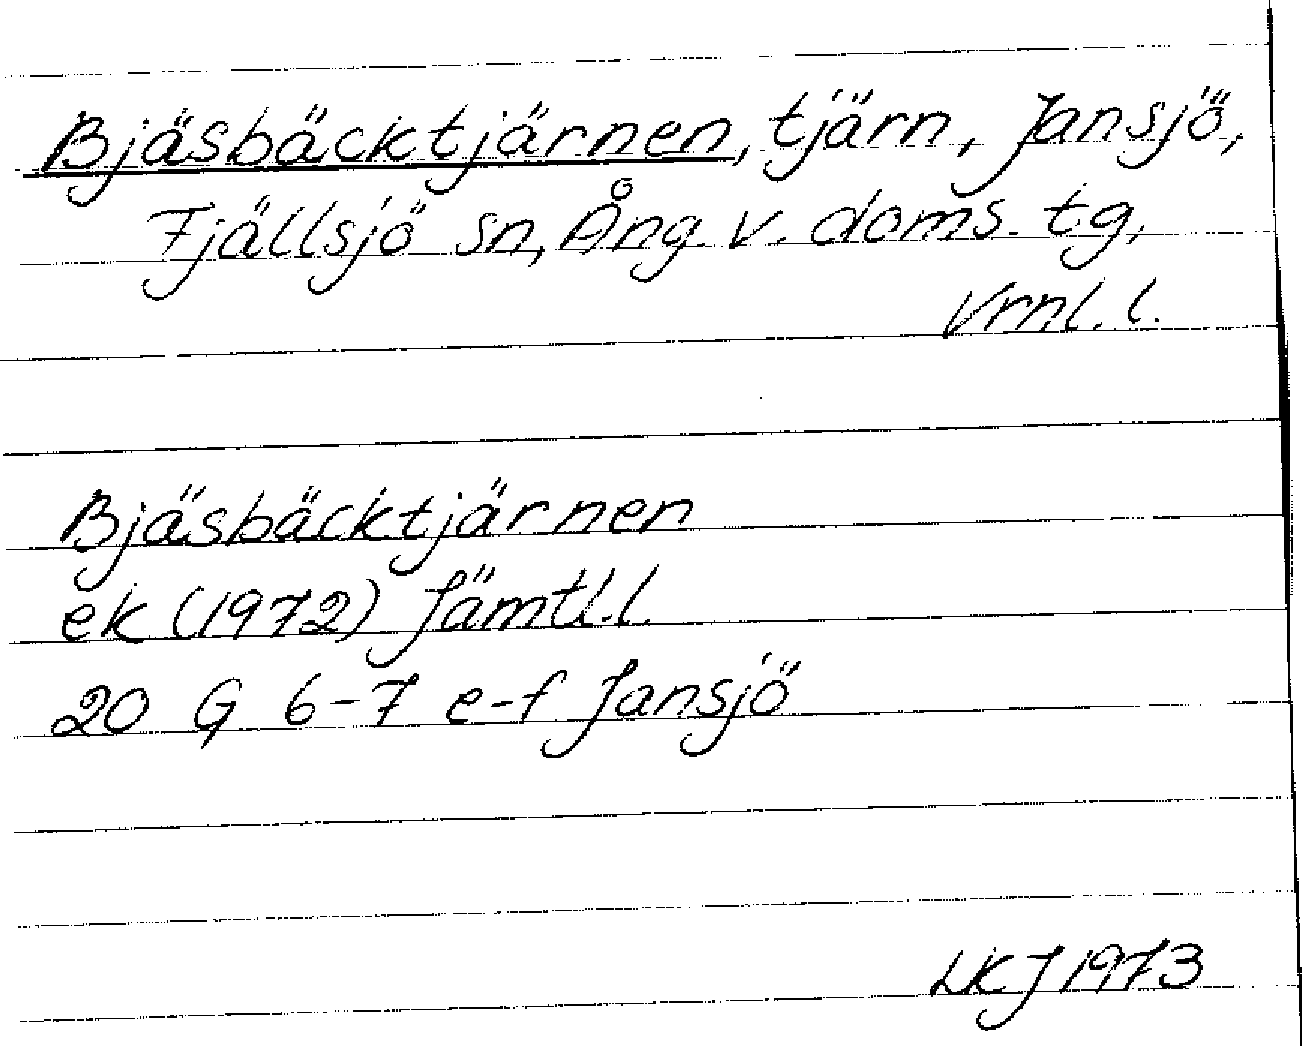 Bjäsbäcktjärnen, tjärn, Jansjö,
Fjällsjö sn, Ång. v. doms. tg,
Vrnl. l.
Bjäsbäcktjärnen
ek (1972) Jämtl.l.
20 G 6-7 e-f Jansjö
LKJ 1973